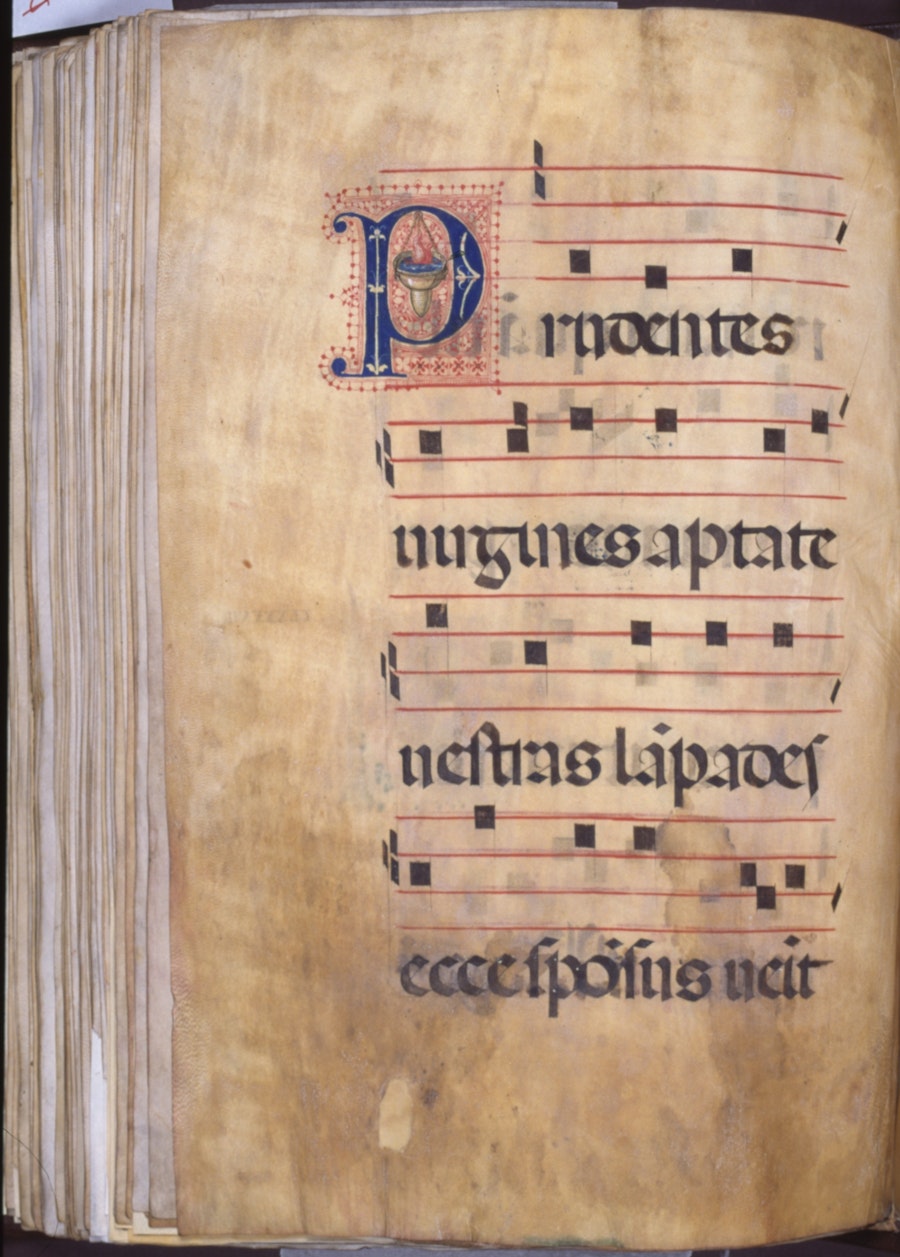 Prudentes
uirgines aptate
uestras lãpades
ecce spõsus ueĩt